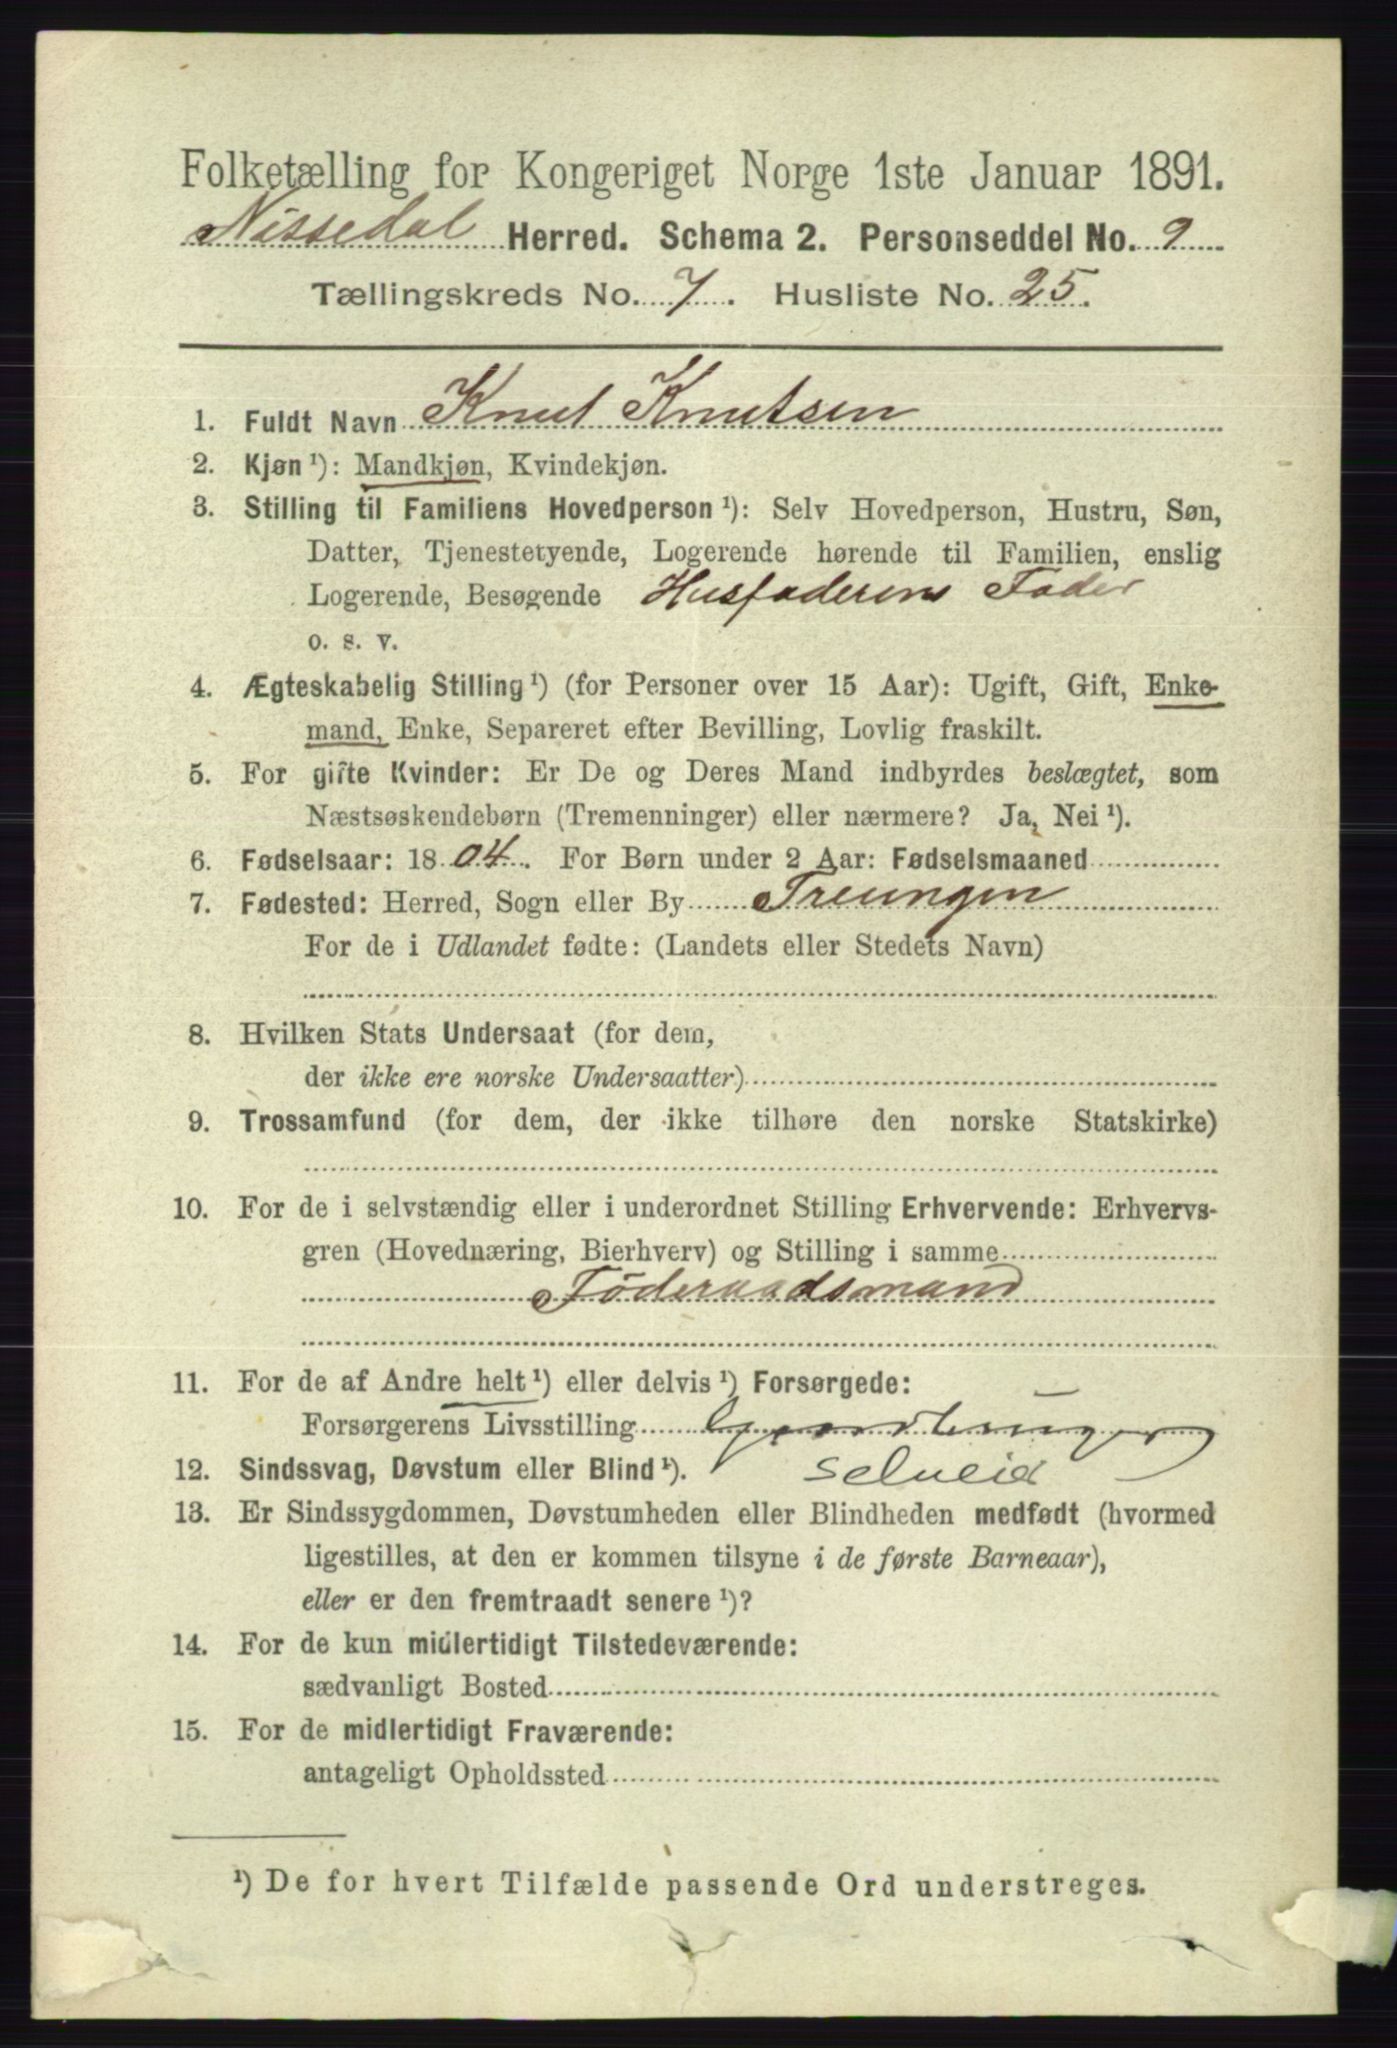 Folketælling for Kongeriget Norge 1ste Januar 1891.
Nissedal Herred. Schema 2. Personseddel No. 9
Tællingskreds No. 7. Husliste No. 25.
1. Fuldt Navn Knut Knutsen
2. Kjøn ¹): Mandkjøn, Kvindekjøn.
3. Stilling til Familiens Hovedperson ¹): Selv Hovedperson, Hustru, Søn,
Datter, Tjenestetyende, Logerende hørende til Familien, enslig
Logerende, Besøgende Husfaderens Fader
o. s. v.
4. Ægteskabelig Stilling ¹) (for Personer over 15 Aar): Ugift, Gift, Enke-
mand, Enke, Separeret efter Bevilling, Lovlig fraskilt.
5. For gifte Kvinder: Er De og Deres Mand indbyrdes beslægtet, som
Næstsøskendebørn (Tremenninger) eller nærmere? Ja, Nei ¹).
6. Fødselsaar: 1804. For Børn under 2 Aar: Fødselsmaaned
7. Fødested: Herred, Sogn eller By Treungen
For de i Udlandet fødte: (Landets eller Stedets Navn)
8. Hvilken Stats Undersaat (for dem,
der ikke ere norske Undersaatter)
9. Trossamfund (for dem, der ikke tilhøre den norske Statskirke)
10. For de i selvstændig eller i underordnet Stilling Erhvervende: Erhvervs-
gren (Hovednæring, Bierhverv) og Stilling i samme
Föderaadsmand
11. For de af Andre helt ¹) eller delvis ¹) Forsørgede:
Forsørgerens Livsstilling Gaardbruger
12. Sindssvag, Døvstum eller Blind ¹). selveid
13. Er Sindssygdommen, Døvstumheden eller Blindheden medfødt (hvormed
ligestilles, at den er kommen tilsyne i de første Barneaar),
eller er den fremtraadt senere ¹)?
14. For de kun midlertidigt Tilstedeværende:
sædvanligt Bosted
15. For de midlertidigt Fraværende:
antageligt Opholdssted
¹) De for hvert Tilfælde passende Ord understreges.